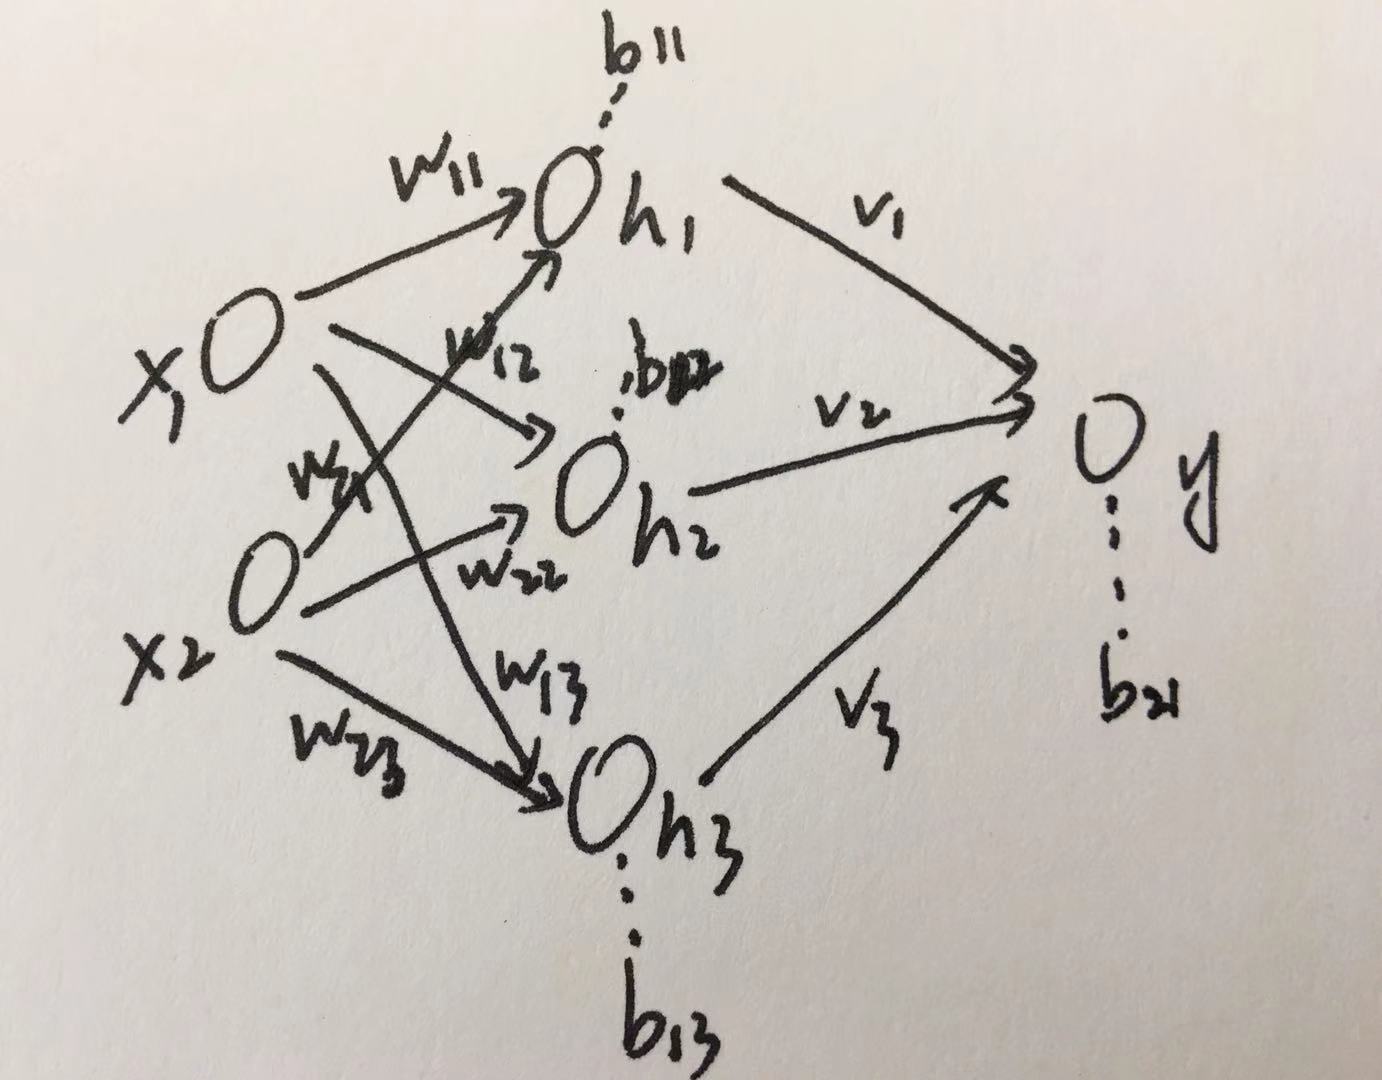 b11
w11
h1
v1
x1
w12
v2
y
w21
h2
w22
x2
w13
b21
v3
w23
h3
b13